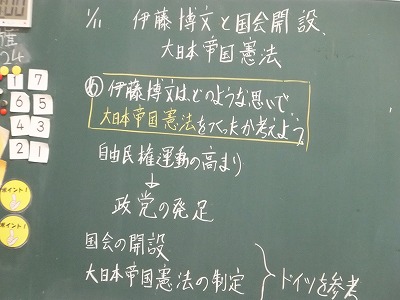 1/11 伊藤博文と国会開設、
大日本帝国憲法
め 伊藤博文は、どのような思いで
大日本帝国憲法をつくったか考えよう。
自由民権運動の高まり
↓
政党の発足
国会の開設
大日本帝国憲法の制定
ドイツを参考
1 7
6 5
4 3
2 1
ポイント!
ポイント!